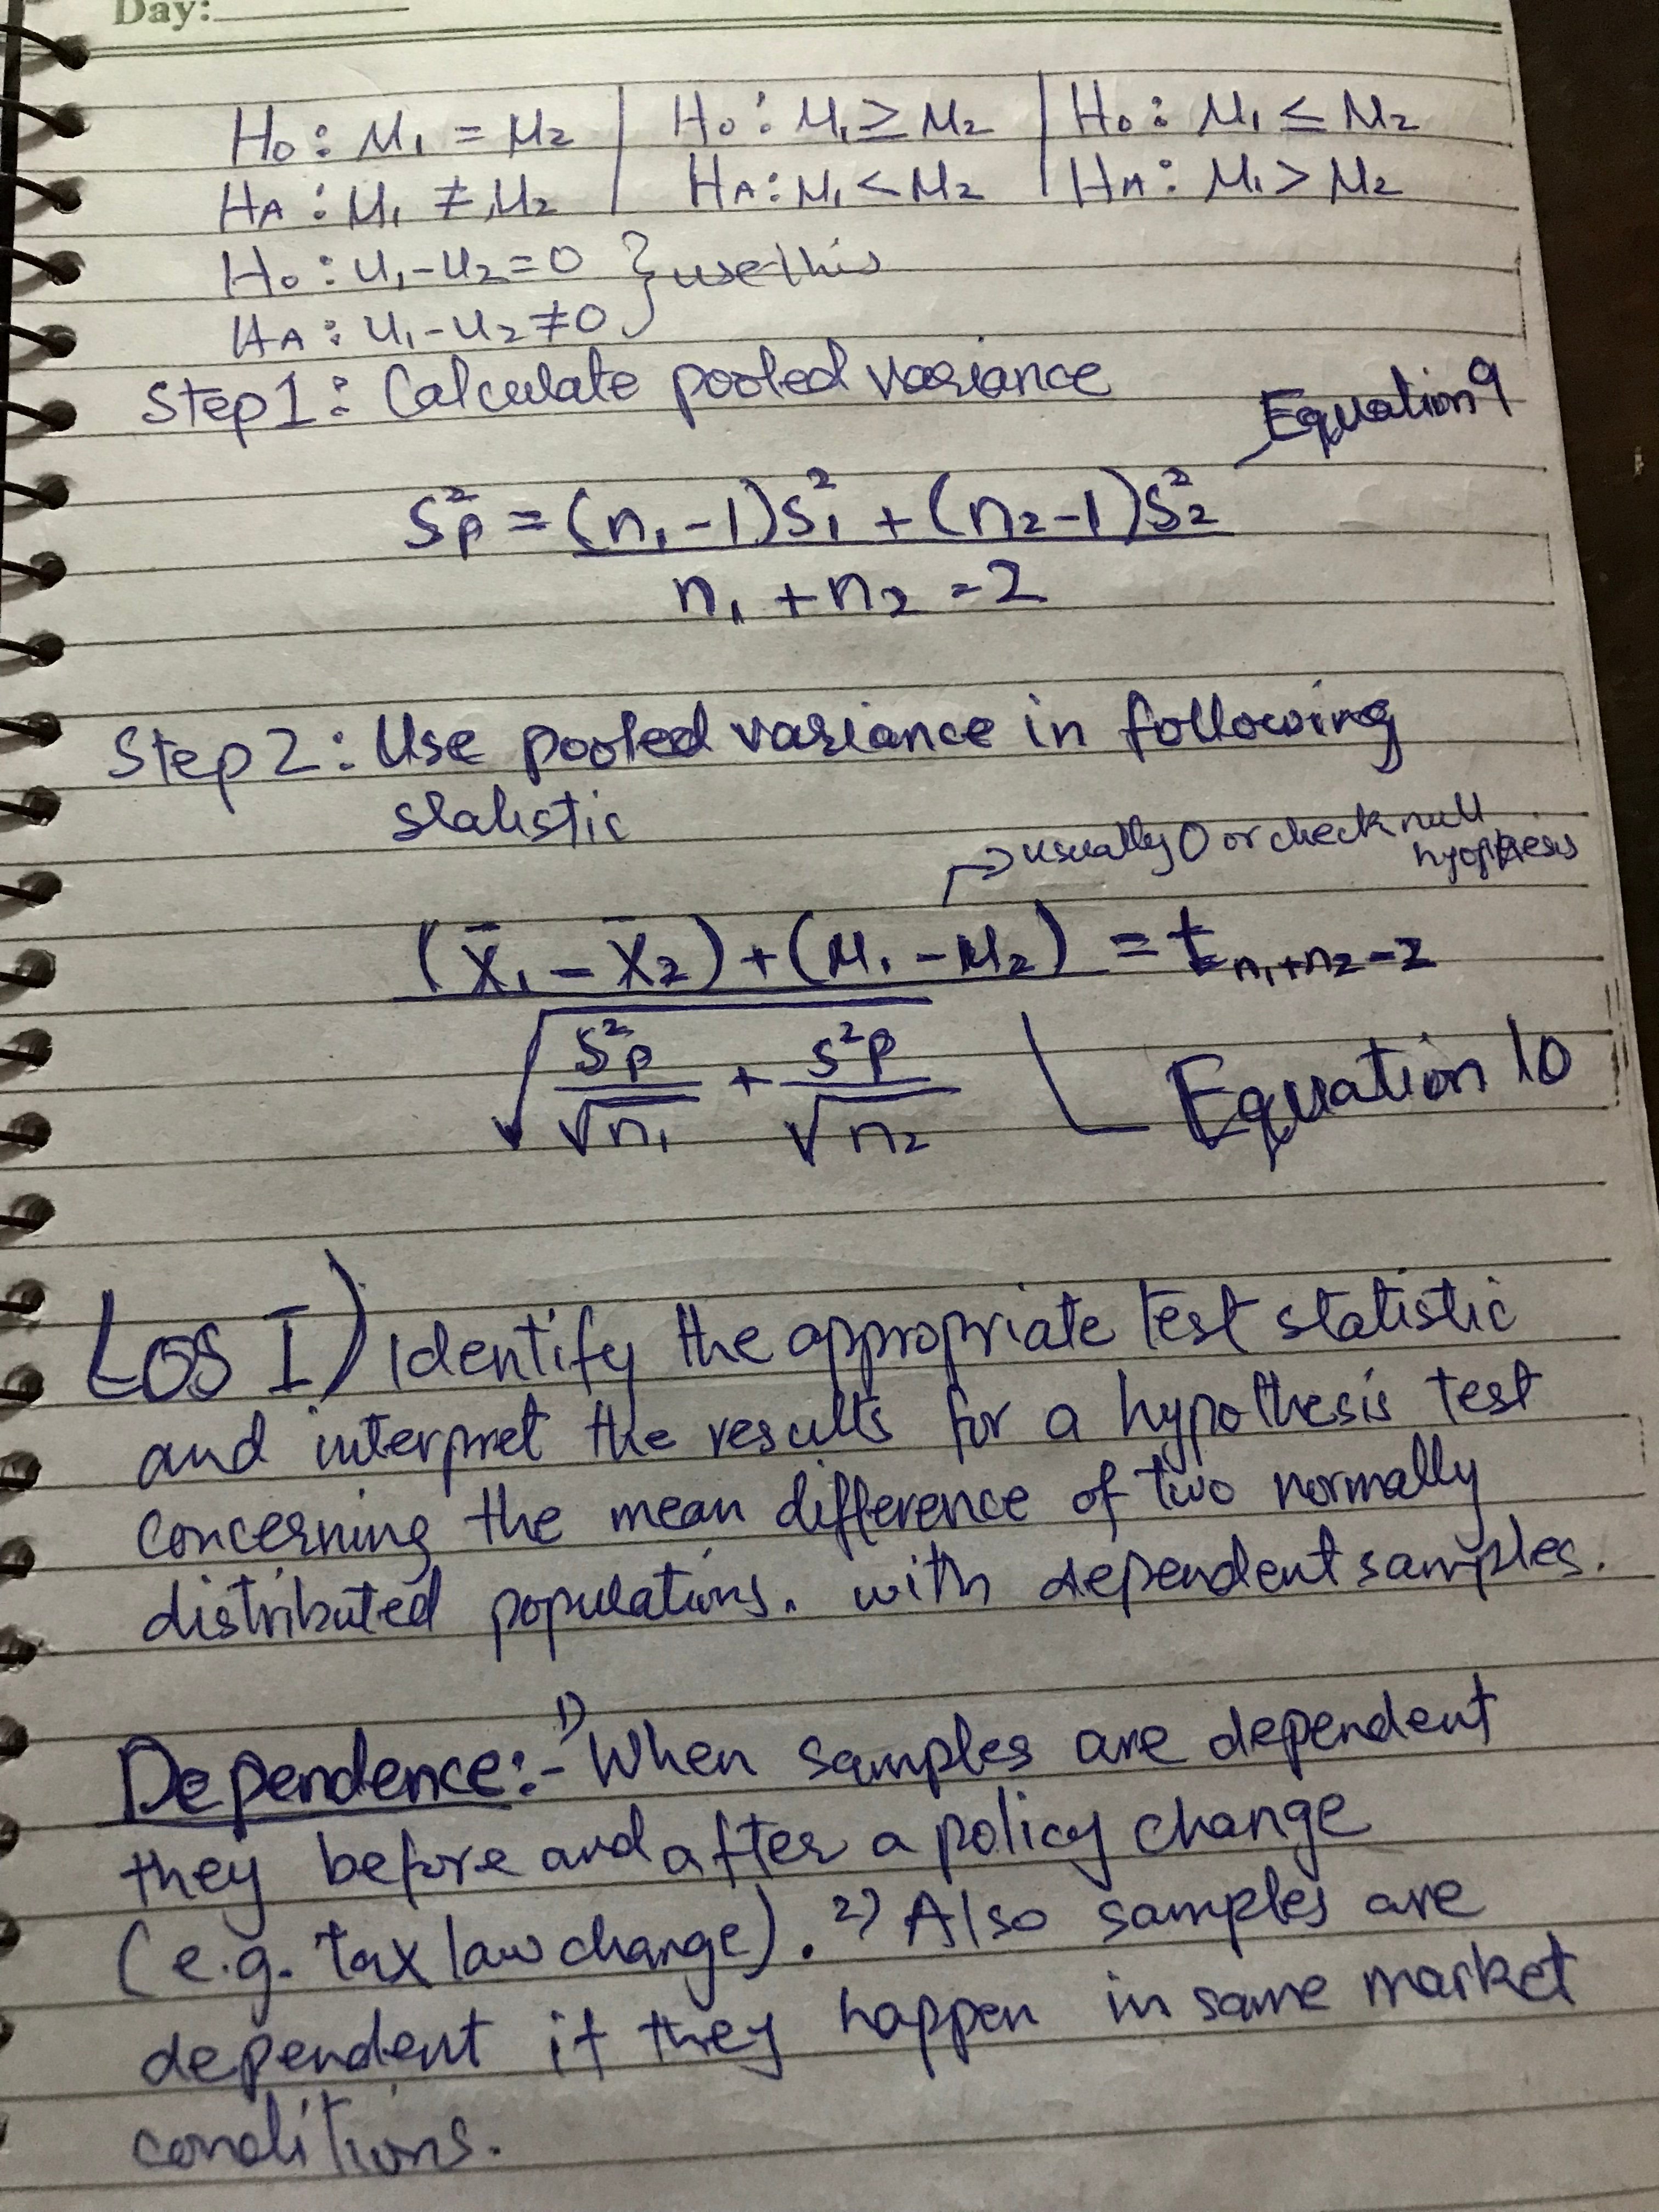 Day:
H₀ : M₁ = M₂ | H₀ : M₁ ≥ M₂ | H₀ : M₁ ≤ M₂
HA : M₁ ≠ M₂ | HA : M₁ < M₂ | HA : M₁ > M₂
H₀ : u₁-u₂=0 } use this
HA : u₁-u₂≠0
Step 1 : Calculate pooled variance
Equation 9
S²p = (n₁-1)S²₁ + (n₂-1)S²₂
n₁ + n₂ - 2
Step 2 : Use pooled variance in following
statistic
→ usually 0 or check null
hyopthesis
(x̄₁ - x̄₂) + (M₁ - M₂) = t n₁+n₂-2
√ S²p/√n₁ + S²p/√n₂
Equation 10
LOS I) Identify the appropriate test statistic
and interpret the results for a hypothesis test
concerning the mean difference of two normally
distributed populations. with dependent samples.
Dependence:- 1) When samples are dependent
they before and after a policy change
(e.g. tax law change). 2) Also samples are
dependent if they happen in same market
conditions.